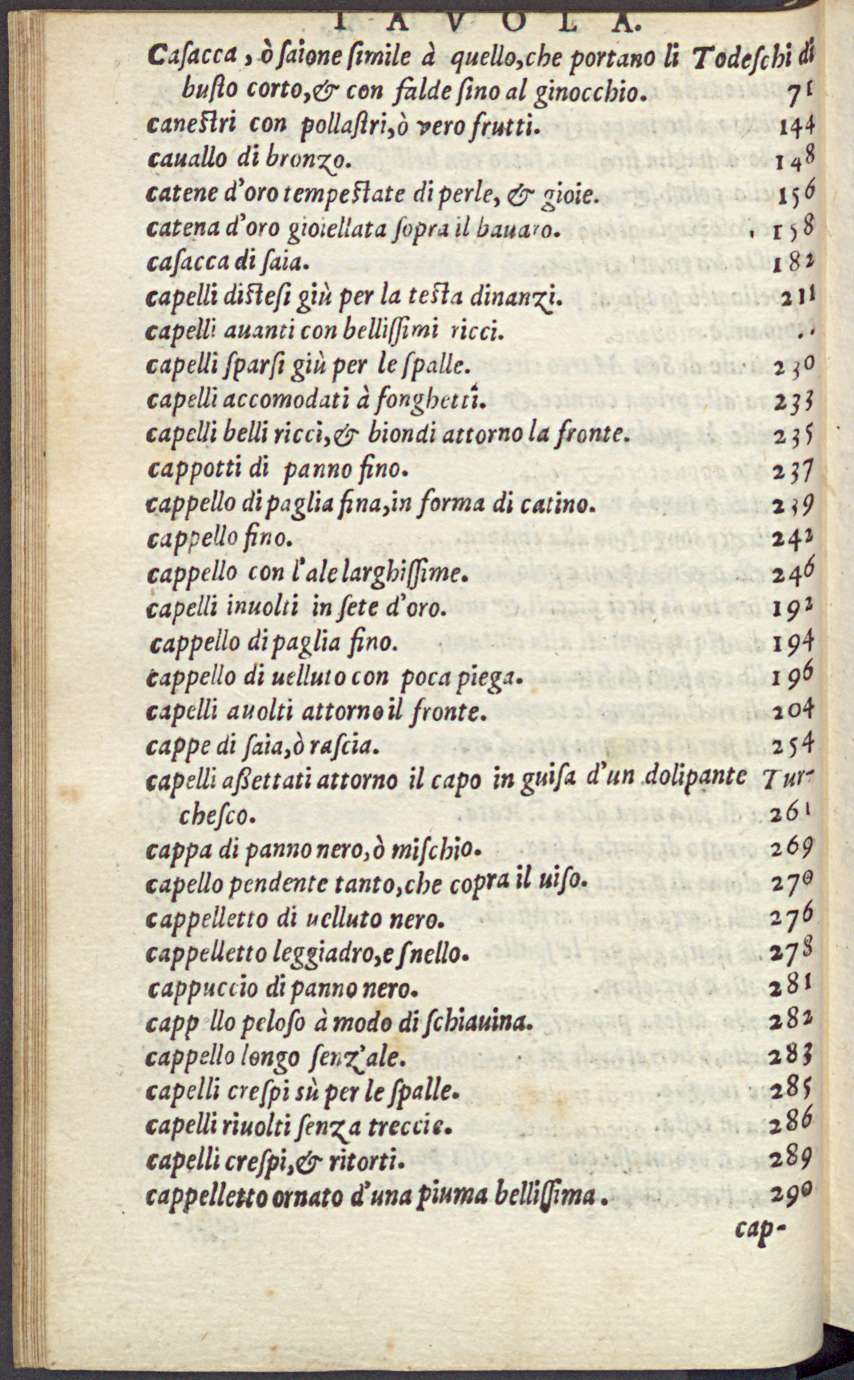 TAVOLA.
Casacca, ò saione simile à quello, che portano li Todeschi di
busto corto, & con falde sino al ginocchio. 71
canestri con pollastri, ò vero frutti. 144
cauallo di bronzo. 148
catene d'oro tempestate di perle, & gioie. 156
catena d'oro gioiellata sopra il bauaro. 158
casacca di saia. 182
capelli distesi giù per la testa dinanzi. 211
capelli auanti con bellissimi ricci.
capelli sparsi giù per le spalle. 230
capelli accomodati à fonghetti. 233
capelli belli ricci, & biondi attorno la fronte. 235
cappotti di panno fino. 237
cappello di paglia fina, in forma di catino. 239
cappello fino. 242
cappello con l'ale larghissime. 246
capelli inuolti in sete d'oro. 192
cappello di paglia fino. 194
cappello di uelluto con poca piega. 196
capelli auolti attorno il fronte. 204
cappe di saia, ò rascia. 254
capelli aßettati attorno il capo in guisa d'un dolipante Tur-
chesco. 261
cappa di panno nero, ò mischio. 269
capello pendente tanto, che copra il uiso. 270
cappelletto di uelluto nero. 276
cappelletto leggiadro, e snello. 278
cappuccio di panno nero. 281
capp llo peloso à modo di schiauina. 282
cappello longo senz'ale. 283
capelli crespi sù per le spalle. 285
capelli riuolti senza treccie. 286
capelli crespi, & ritorti. 289
cappelletto ornato d'una piuma bellissima. 290
cap-